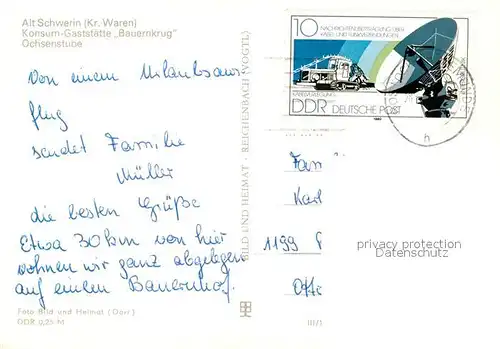 Alt Schwerin (Kr. Waren)
Konsum-Gaststätte „Bauernkrug"
Ochsenstube
Von einem Urlaubsaus
flug
sendet Familie
Müller
die besten Grüße
Etwa 30 km von hier
wohnen wir ganz abgelegen
auf einem Bauernhof.
Foto Bild und Heimat (Darr)
DDR 0,25 M
BILD UND HEIMAT · REICHENBACH (VOGTL)
10
NACHRICHTENÜBERTRAGUNG ÜBER
KABEL UND FUNKVERBINDUNGEN
KABELVERLEGUNG
DDR DEUTSCHE POST
1980
h
Fam
Karl
1199
privacy protection
Datenschutz
III/1